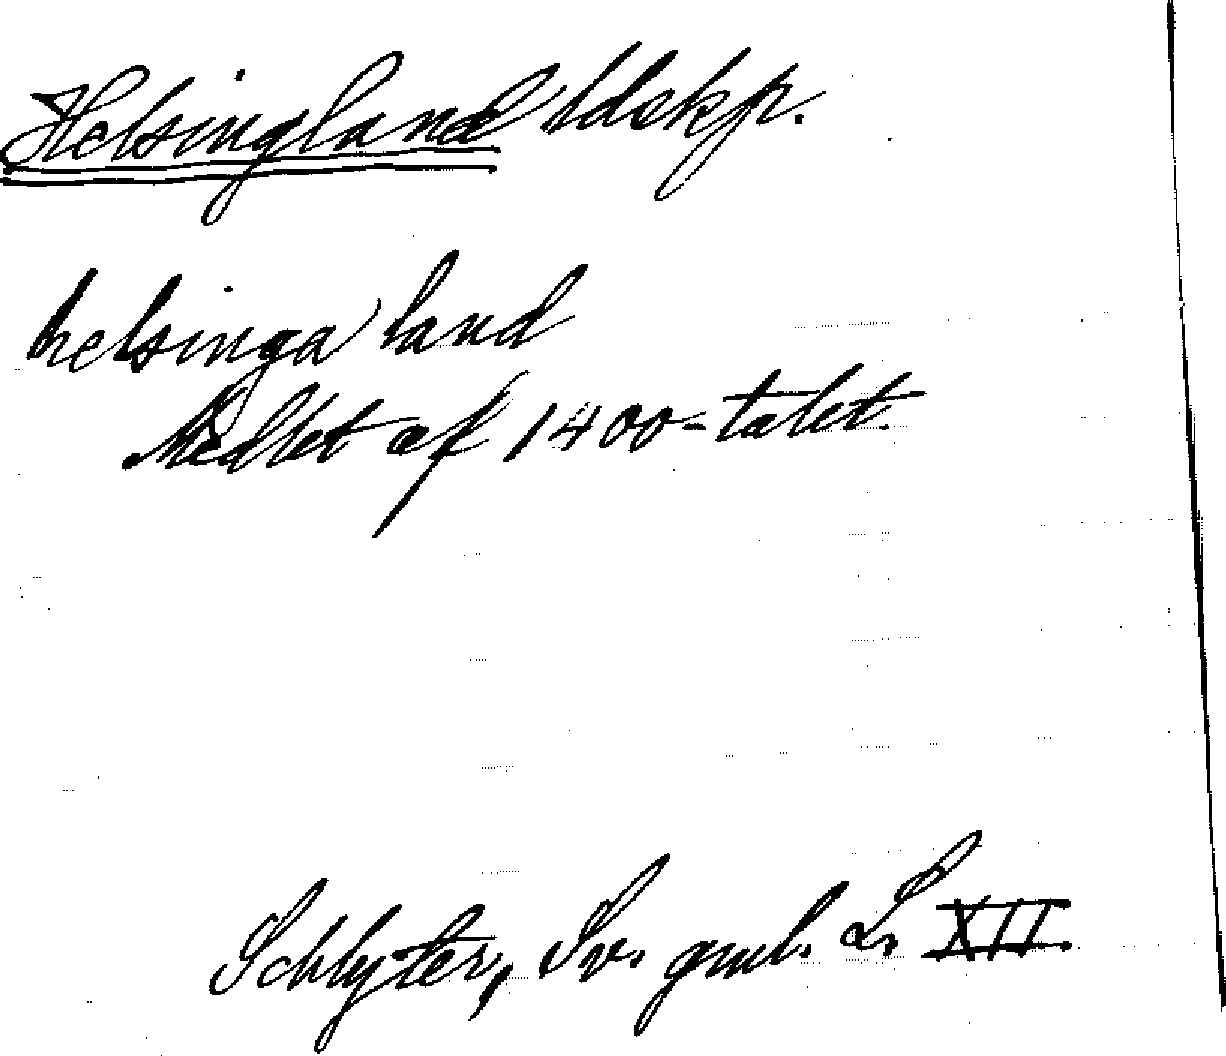 Helsingland ldskp.
helsinga land
Medlet af 1400-talet.
Schlyter, Sv. gml. L. XII.